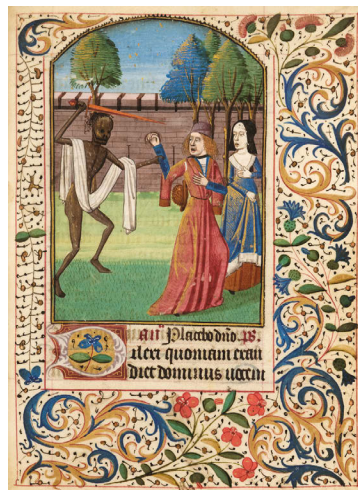 añ. Placebo dño. ps.
Dilexi quoniam exau
diet dominus vocem